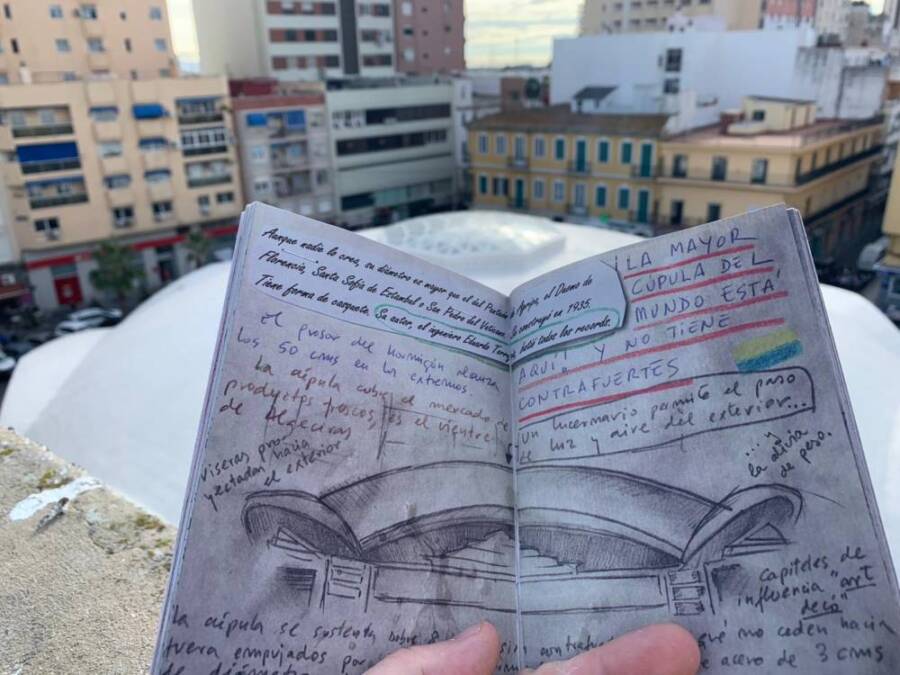 Aunque nadie lo crea, su diámetro es mayor que el del Panteón
Agripa, el Duomo de
Florencia, Santa Sofía de Estambul o San Pedro del Vaticano.
construyó en 1935,
Tiene forma de casquete. Su autor, el ingeniero Eduardo Torroja
batió todos los records.
El grosor del hormigón alcanza
los 50 cms en los extremos.
La cúpula cubre el mercado de
productos frescos, es el vientre
de Algeciras
viseras pro-
yectadas hacia
el exterior
¡LA MAYOR
CÚPULA DEL
MUNDO ESTÁ
AQUÍ! Y NO TIENE
CONTRAFUERTES
Un lucernario permite el paso
de luz y aire del exterior...
... y
la alivia
de peso.
capiteles de
influencia "art
decó"
La cúpula se sustenta sobre 8
sin
que no ceden hacia
fuera empujados por
de acero de 3 cms
de diámetro